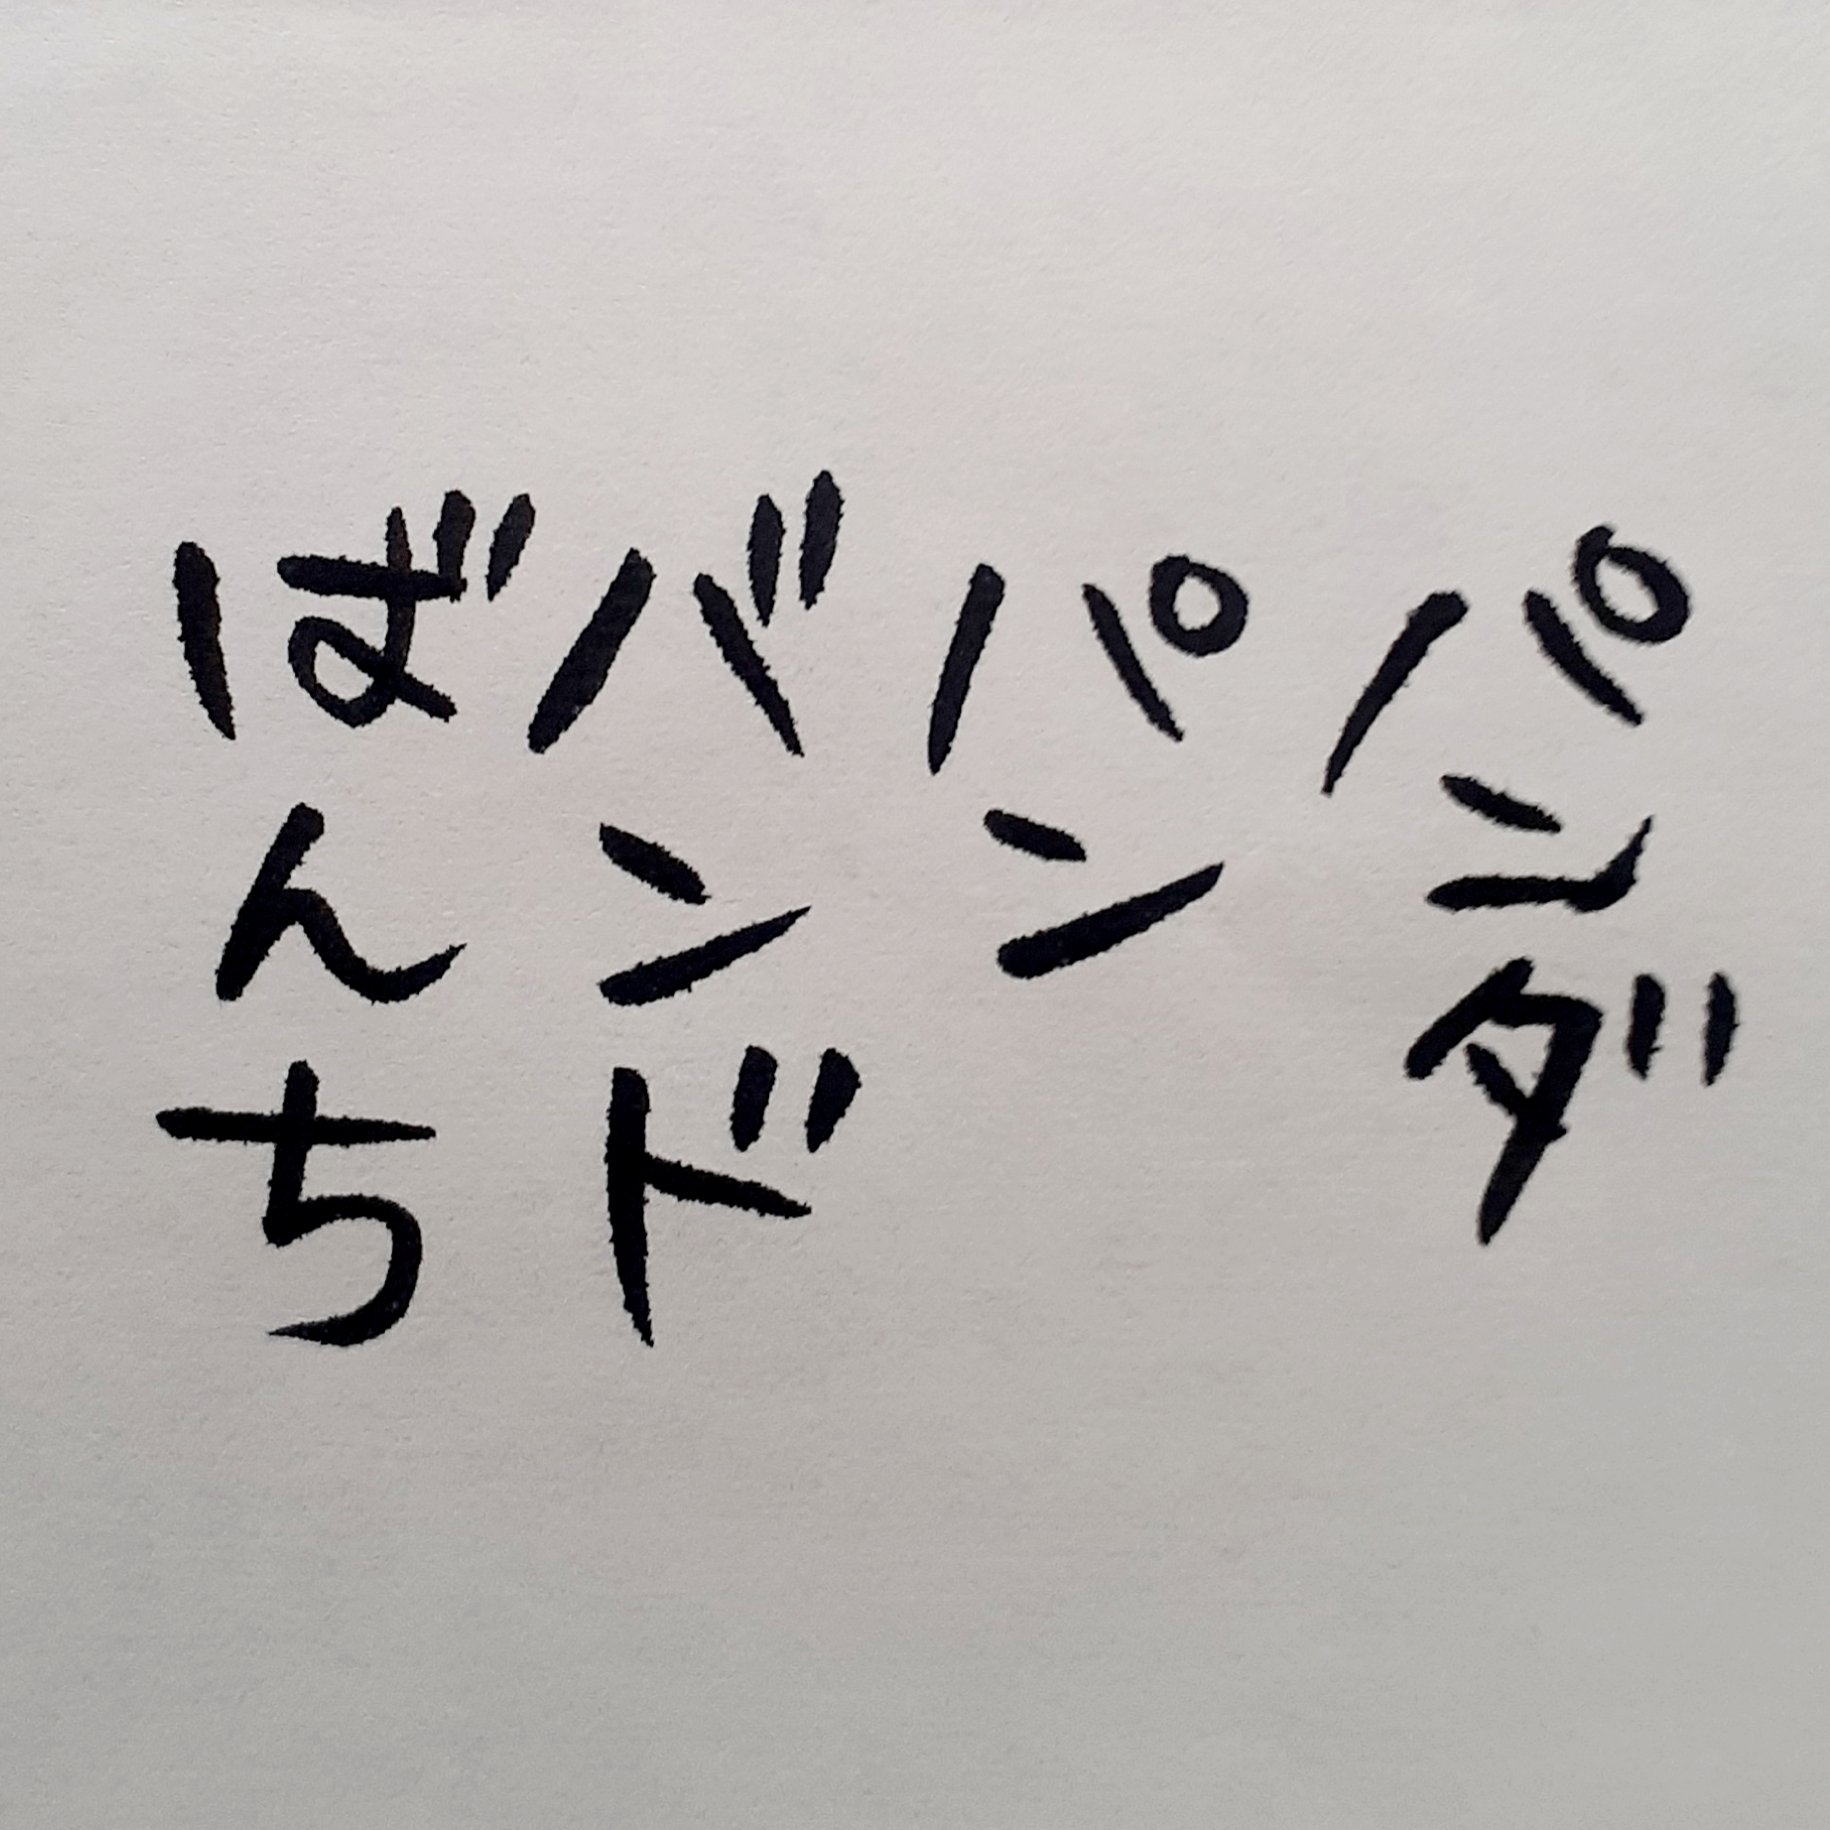 パンダ
パン
バンド
ばんち